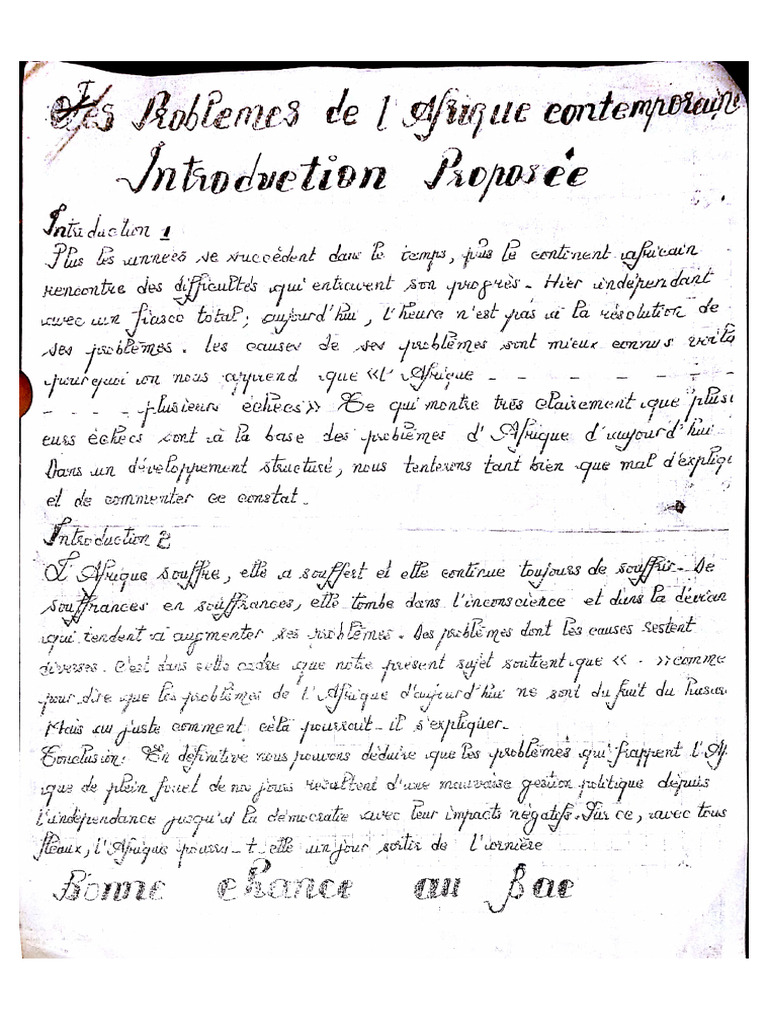 Les Problemes de l'Afrique contemporaine
Introduction Proposée
Introduction 1
Plus les années se succèdent dans le temps, plus le continent africain
rencontre des difficultés qui entravent son progrès. Hier indépendant
avec un fiasco total; aujourd'hui, l'heure n'est pas à la résolution de
ses problèmes. Les causes de ses problèmes sont mieux connus voilà
pourquoi on nous apprend que «l'Afrique - - - - - -
- - - - plusieurs échecs» Ce qui montre très clairement que plusi
eurs échecs sont à la base des problèmes d'Afrique d'aujourd'hui.
Dans un développement structuré, nous tenterons tant bien que mal d'explique
et de commenter ce constat.
Introduction 2
L'Afrique souffre, elle a souffert et elle continue toujours de souffrir. De
souffrances en souffrances, elle tombe dans l'inconscience et dans la dévian
qui tendent à augmenter ses problèmes. Des problèmes dont les causes restent
diverses. C'est dans cette cadre que nôtre présent sujet soutient que « . » comme
pour dire que les problèmes de l'Afrique d'aujourd'hui ne sont du fruit du hasar
Mais au juste comment celà pourrait-il s'expliquer.
Conclusion: En définitive nous pouvons déduire que les problèmes qui frappent l'Af
que de plein fouet de nos jours résultent d'une mauvaise gestion politique depuis
l'indépendance jusqu'à la démocratie avec leur impacts négatifs. Sur ce, avec tous
fleaux, l'Afrique pourra-t-elle un jour sortir de l'ornière
Bonne chance au Bac